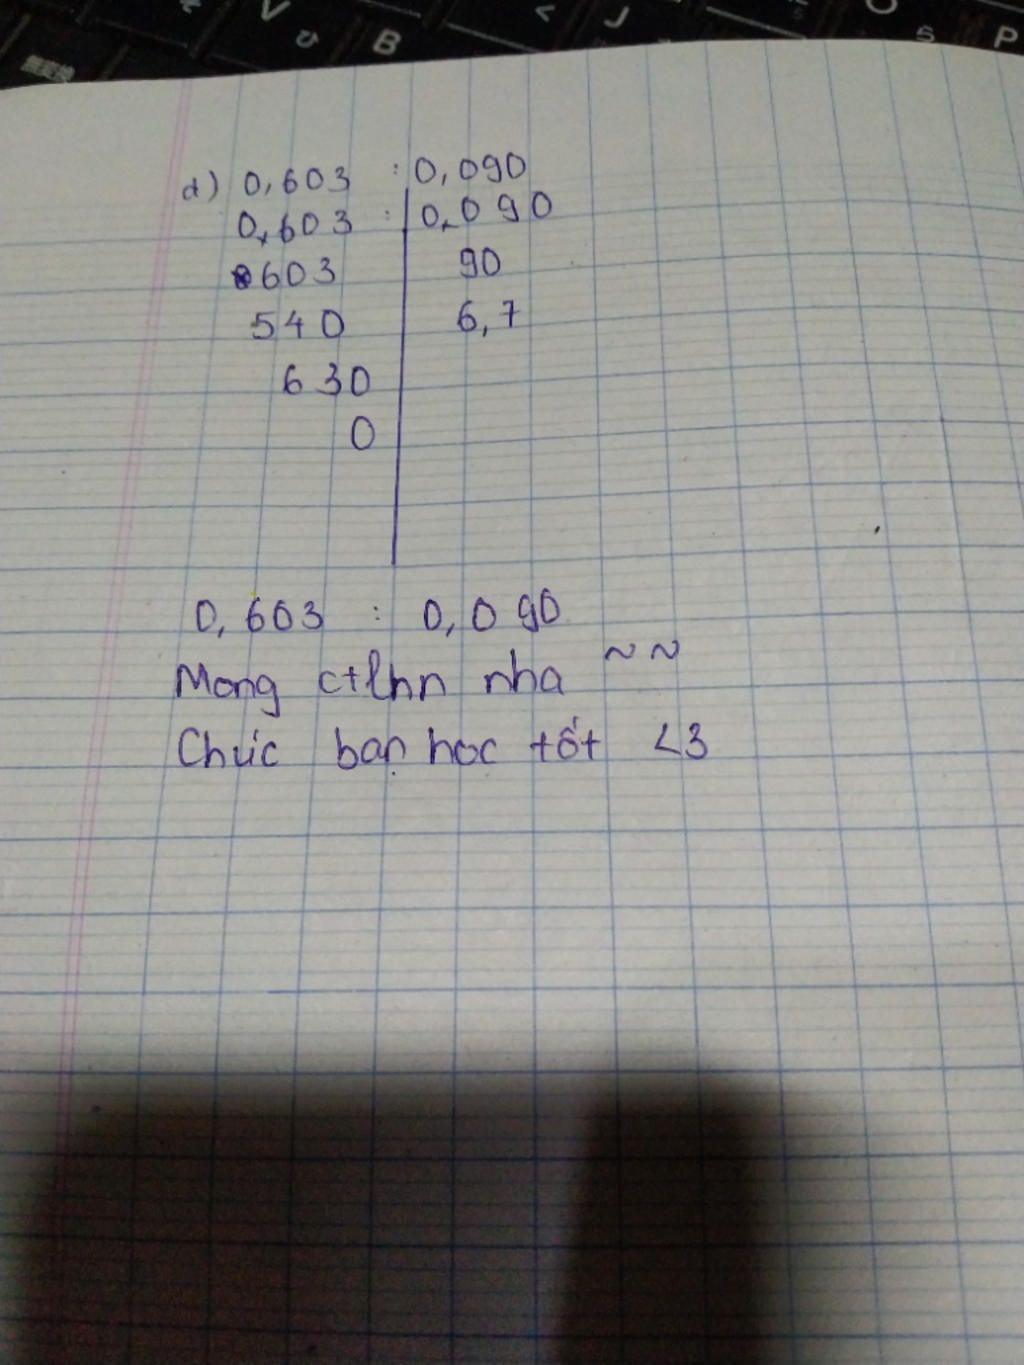 V J S P
B
d) 0,603 : 0,090
0,603 : 0,090
603 90
540 6,7
630
0
0,603 : 0,090
Mong ctlhn nha ~~
Chúc bạn học tốt <3